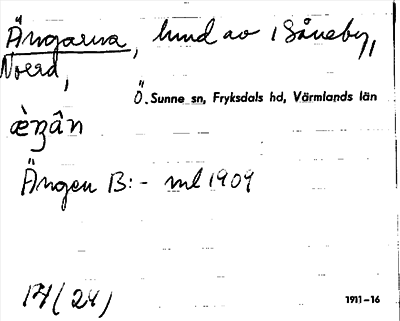 Ängarna, hmd av 1 Såneby,
Norra,
Ö. Sunne sn, Fryksdals hd, Värmlands län
Ängen B:- ml 1909
14 (24)
1911–16